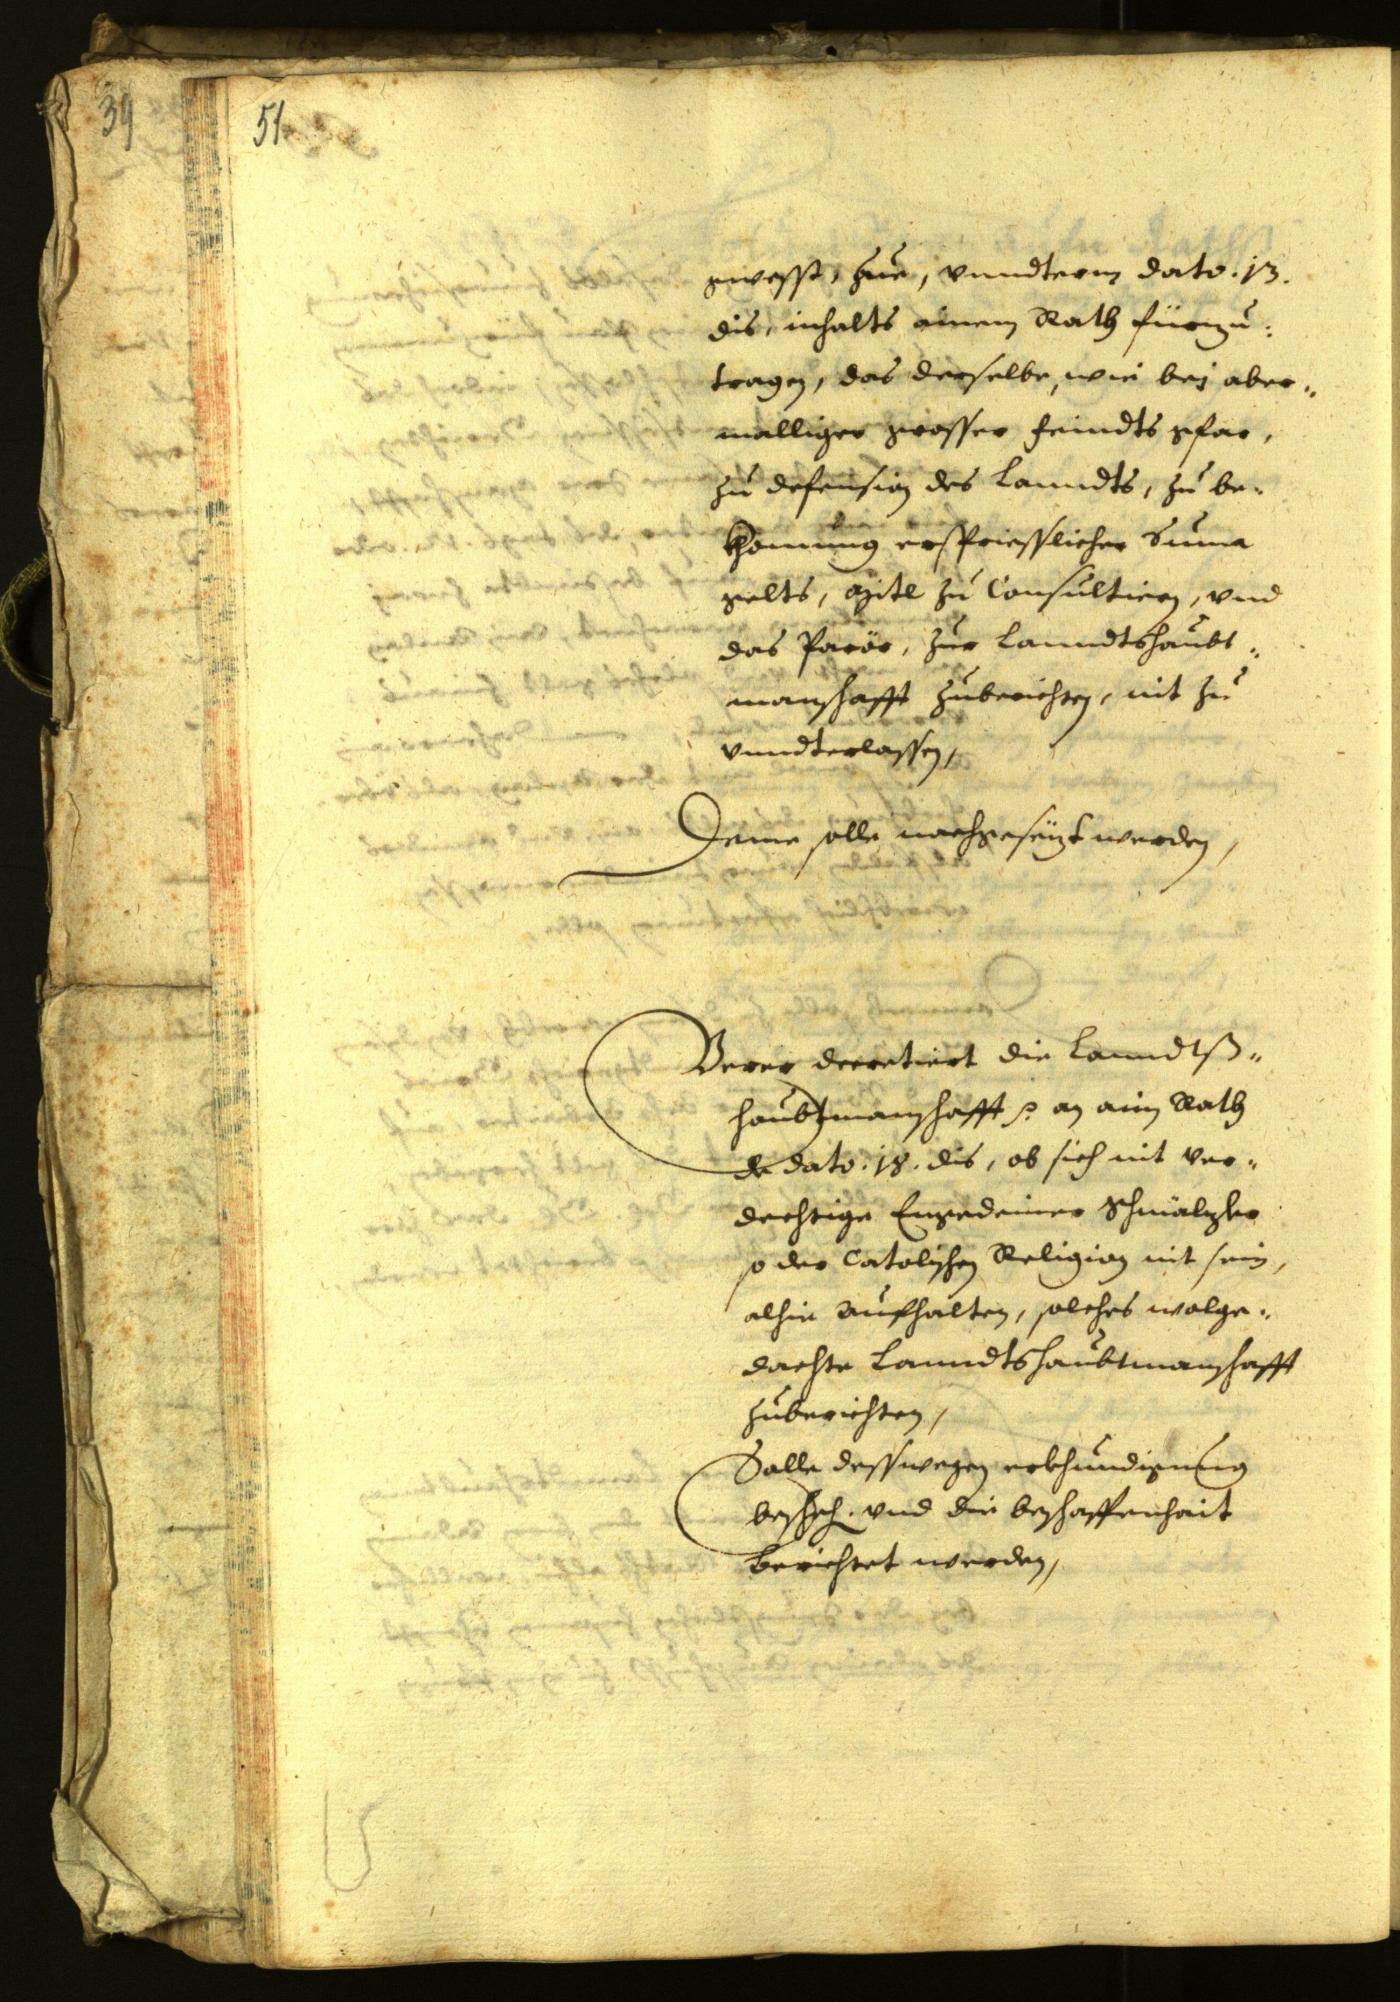 39
51
gwesst, zue, vnndterm dato .13.
dis, inhalts ainem Rath fürzu-
tragen, das derselbe, wie bei aber-
malliger grosser feindts gfar,
zu defension des Lanndts, zu be-
khomung erspriesslicher Suma
gelts, Mitl zu Consultiern, vnd
das Parär, zur Lanndtshaubt-
manschafft zuberichten, nit zu
vnndterlassen,
Deme solle nachgesezt werden,
Verer decretiert die Lanndtß-
haubtmanschafft an ain Rath
de dato .18. dis, ob sich nit ver-
dechtige Engedeiner Schmälzler
so der Catolischen Religion nit sein,
alhie aufhalten, solches wolge-
dachte Lanndtshaubtmanschafft
zuberichten,
Solle desswegen erkhundigung
besch. vnd die beschaffenhait
berichtet werden,